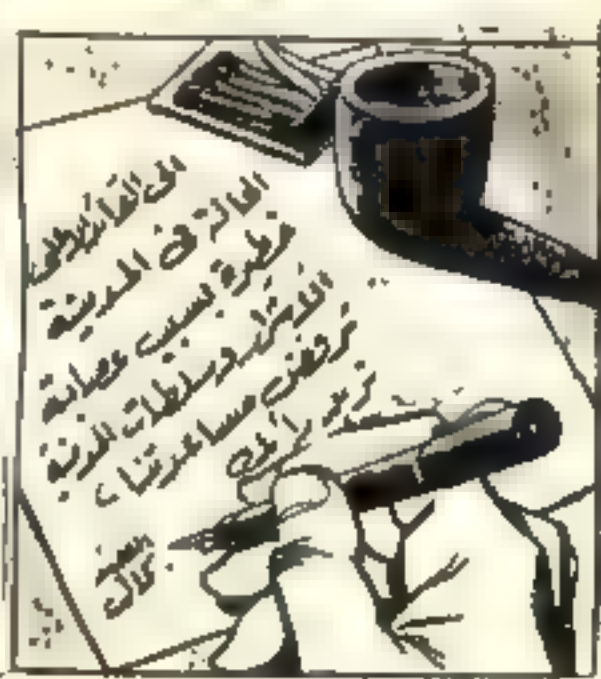 الى القائد
الحالة في المدينة
خطرة بسبب عصابة
الاشرار وسلطات المدينة
ترفض مساعدتنا
نريد رأيك
كمال